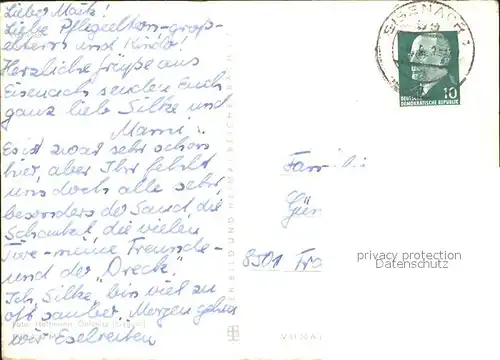 Lieber Maik!
Liebe Pflegeeltern-groß-
eltern und Kinder!
Herzliche Grüße aus
Eisenach senden Euch
ganz liebe Silke und
Mami.
Es ist zwar sehr schön
hier, aber Ihr fehlt
uns doch alle sehr,
besonders der Sand, die
Schaukel, die vielen
Tiere - meine Freunde -
und der "Dreck".
Ich, Silke, bin viel zu
oft sauber. Morgen gehen
wir Eselreiten
EISENACH 1
DEUTSCHE
DEMOKRATISCHE REPUBLIK 10
Fami
Gün
8501 Fro
privacy protection
Datenschutz
BILD UND HEIMAT REICHENBACH
Foto: Hoffmann,